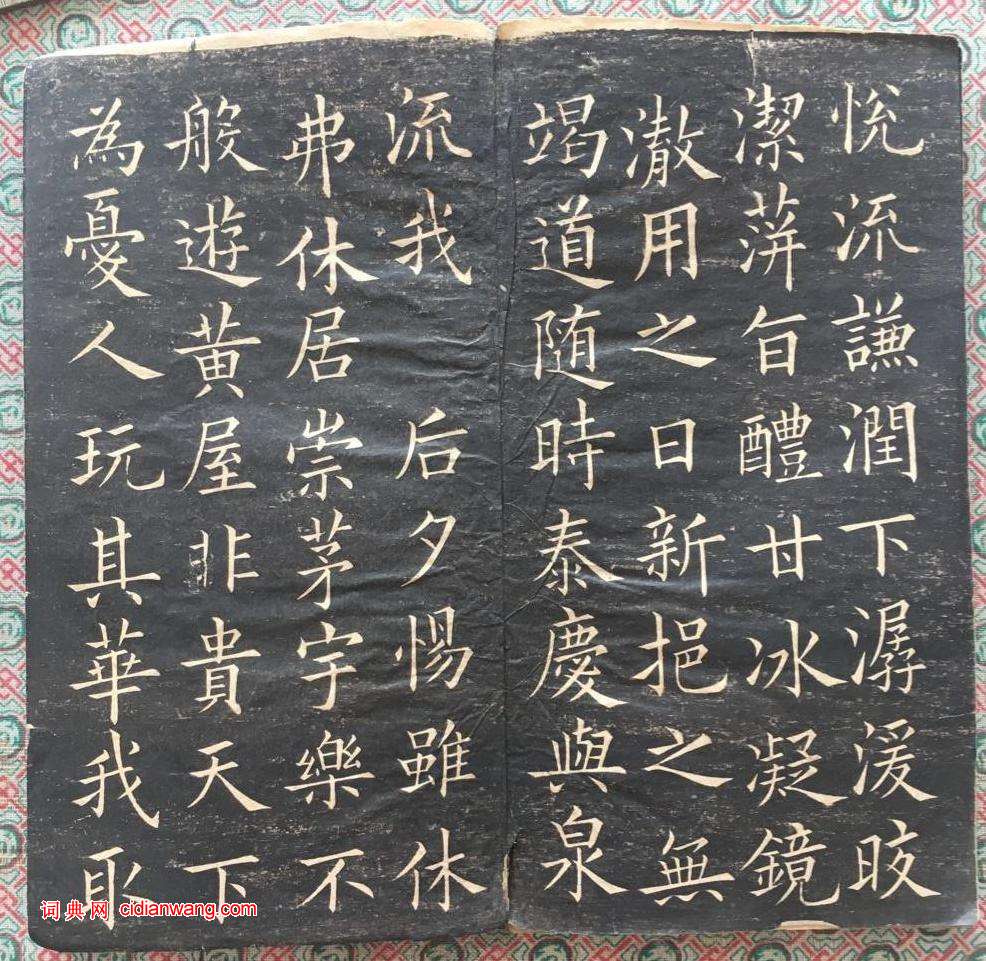 悅流謙潤下潺湲晈
潔蓱旨醴甘冰凝鏡
澈用之日新挹之無
竭道随時泰慶與泉
流我 后夕惕雖休
弗休居崇茅宇樂不
般遊黄屋非貴天下
為憂人玩其華我取
词典网 cidianwang.com